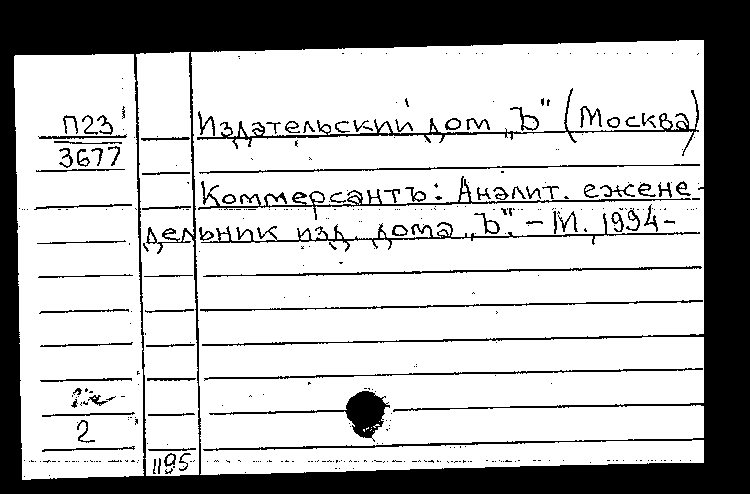 П23 Издательский дом „Ъ" (Москва)
3677
Коммерсантъ: Аналит. ежене-
дельник изд. дома „Ъ". - М., 1994-
2
1195